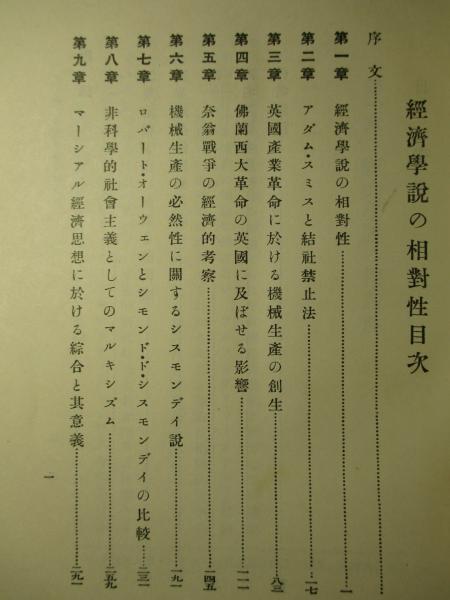 經濟學說の相對性目次
序文……………………………
第一章 經濟學說の相對性……………………一
第二章 アダム・スミスと結社禁止法……………………一七
第三章 英國產業革命に於ける機械生產の創生……………………八三
第四章 佛蘭西大革命の英國に及ぼせる影響……………………一一一
第五章 奈翁戰爭の經濟的考察……………………一四五
第六章 機械生產の必然性に關するシスモンデイ說……………………一九一
第七章 ロバート・オーウェンとシモンド・ド・シスモンデイの比較……二三一
第八章 非科學的社會主義としてのマルキシズム……………………二五九
第九章 マーシアル經濟思想に於ける綜合と其意義……………………二九一
一